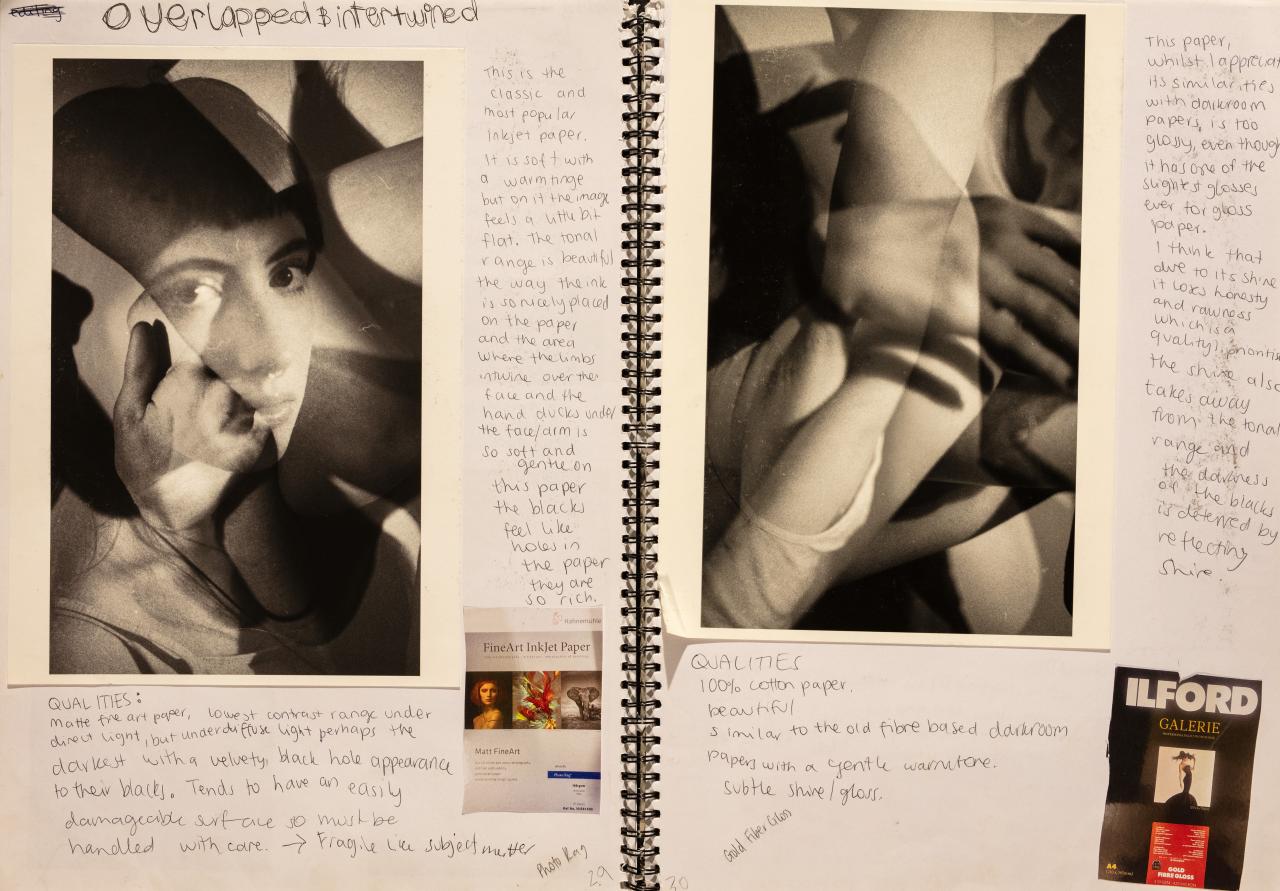 Overlapped & intertwined
This is the
classic and
most popular
Inkjet paper.
It is soft with
a warm tinge
but on it the image
feels a little bit
flat. The tonal
range is beautiful
the way the ink
is so nicely placed
on the paper
and the area
where the limbs
intwine over the
face and the
hand ducks under
the face/arm is
so soft and
gentle on
this paper
the blacks
feel like
holes in
the paper
they are
so rich.
QUALITIES:
matte fine art paper, lowest contrast range under
direct light, but under diffuse light perhaps the
darkest with a velvety, black hole appearance
to their blacks. Tends to have an easily
damageable surface so must be
handled with care. → Fragile like subject matter
Photo Rag
29
Hahnemühle
FineArt InkJet Paper
Matt FineArt
Photo Rag
This paper,
whilst I appreciat
its similarities
with darkroom
papers, is too
glossy, even though
it has one of the
slightest glosses
ever for gloss
paper.
I think that
due to its shine
it loses honesty
and rawness
which is a
quality I prioritis
the shine also
takes away
from the tonal
range and
the darkness
of the blacks
is deterred by
reflecting
shine.
QUALITIES
100% cotton paper.
beautiful
similar to the old fibre based darkroom
papers with a gentle warmtone.
subtle shine/gloss.
Gold Fiber Gloss
30
ILFORD
GALERIE
A4
GOLD
FIBRE GLOSS